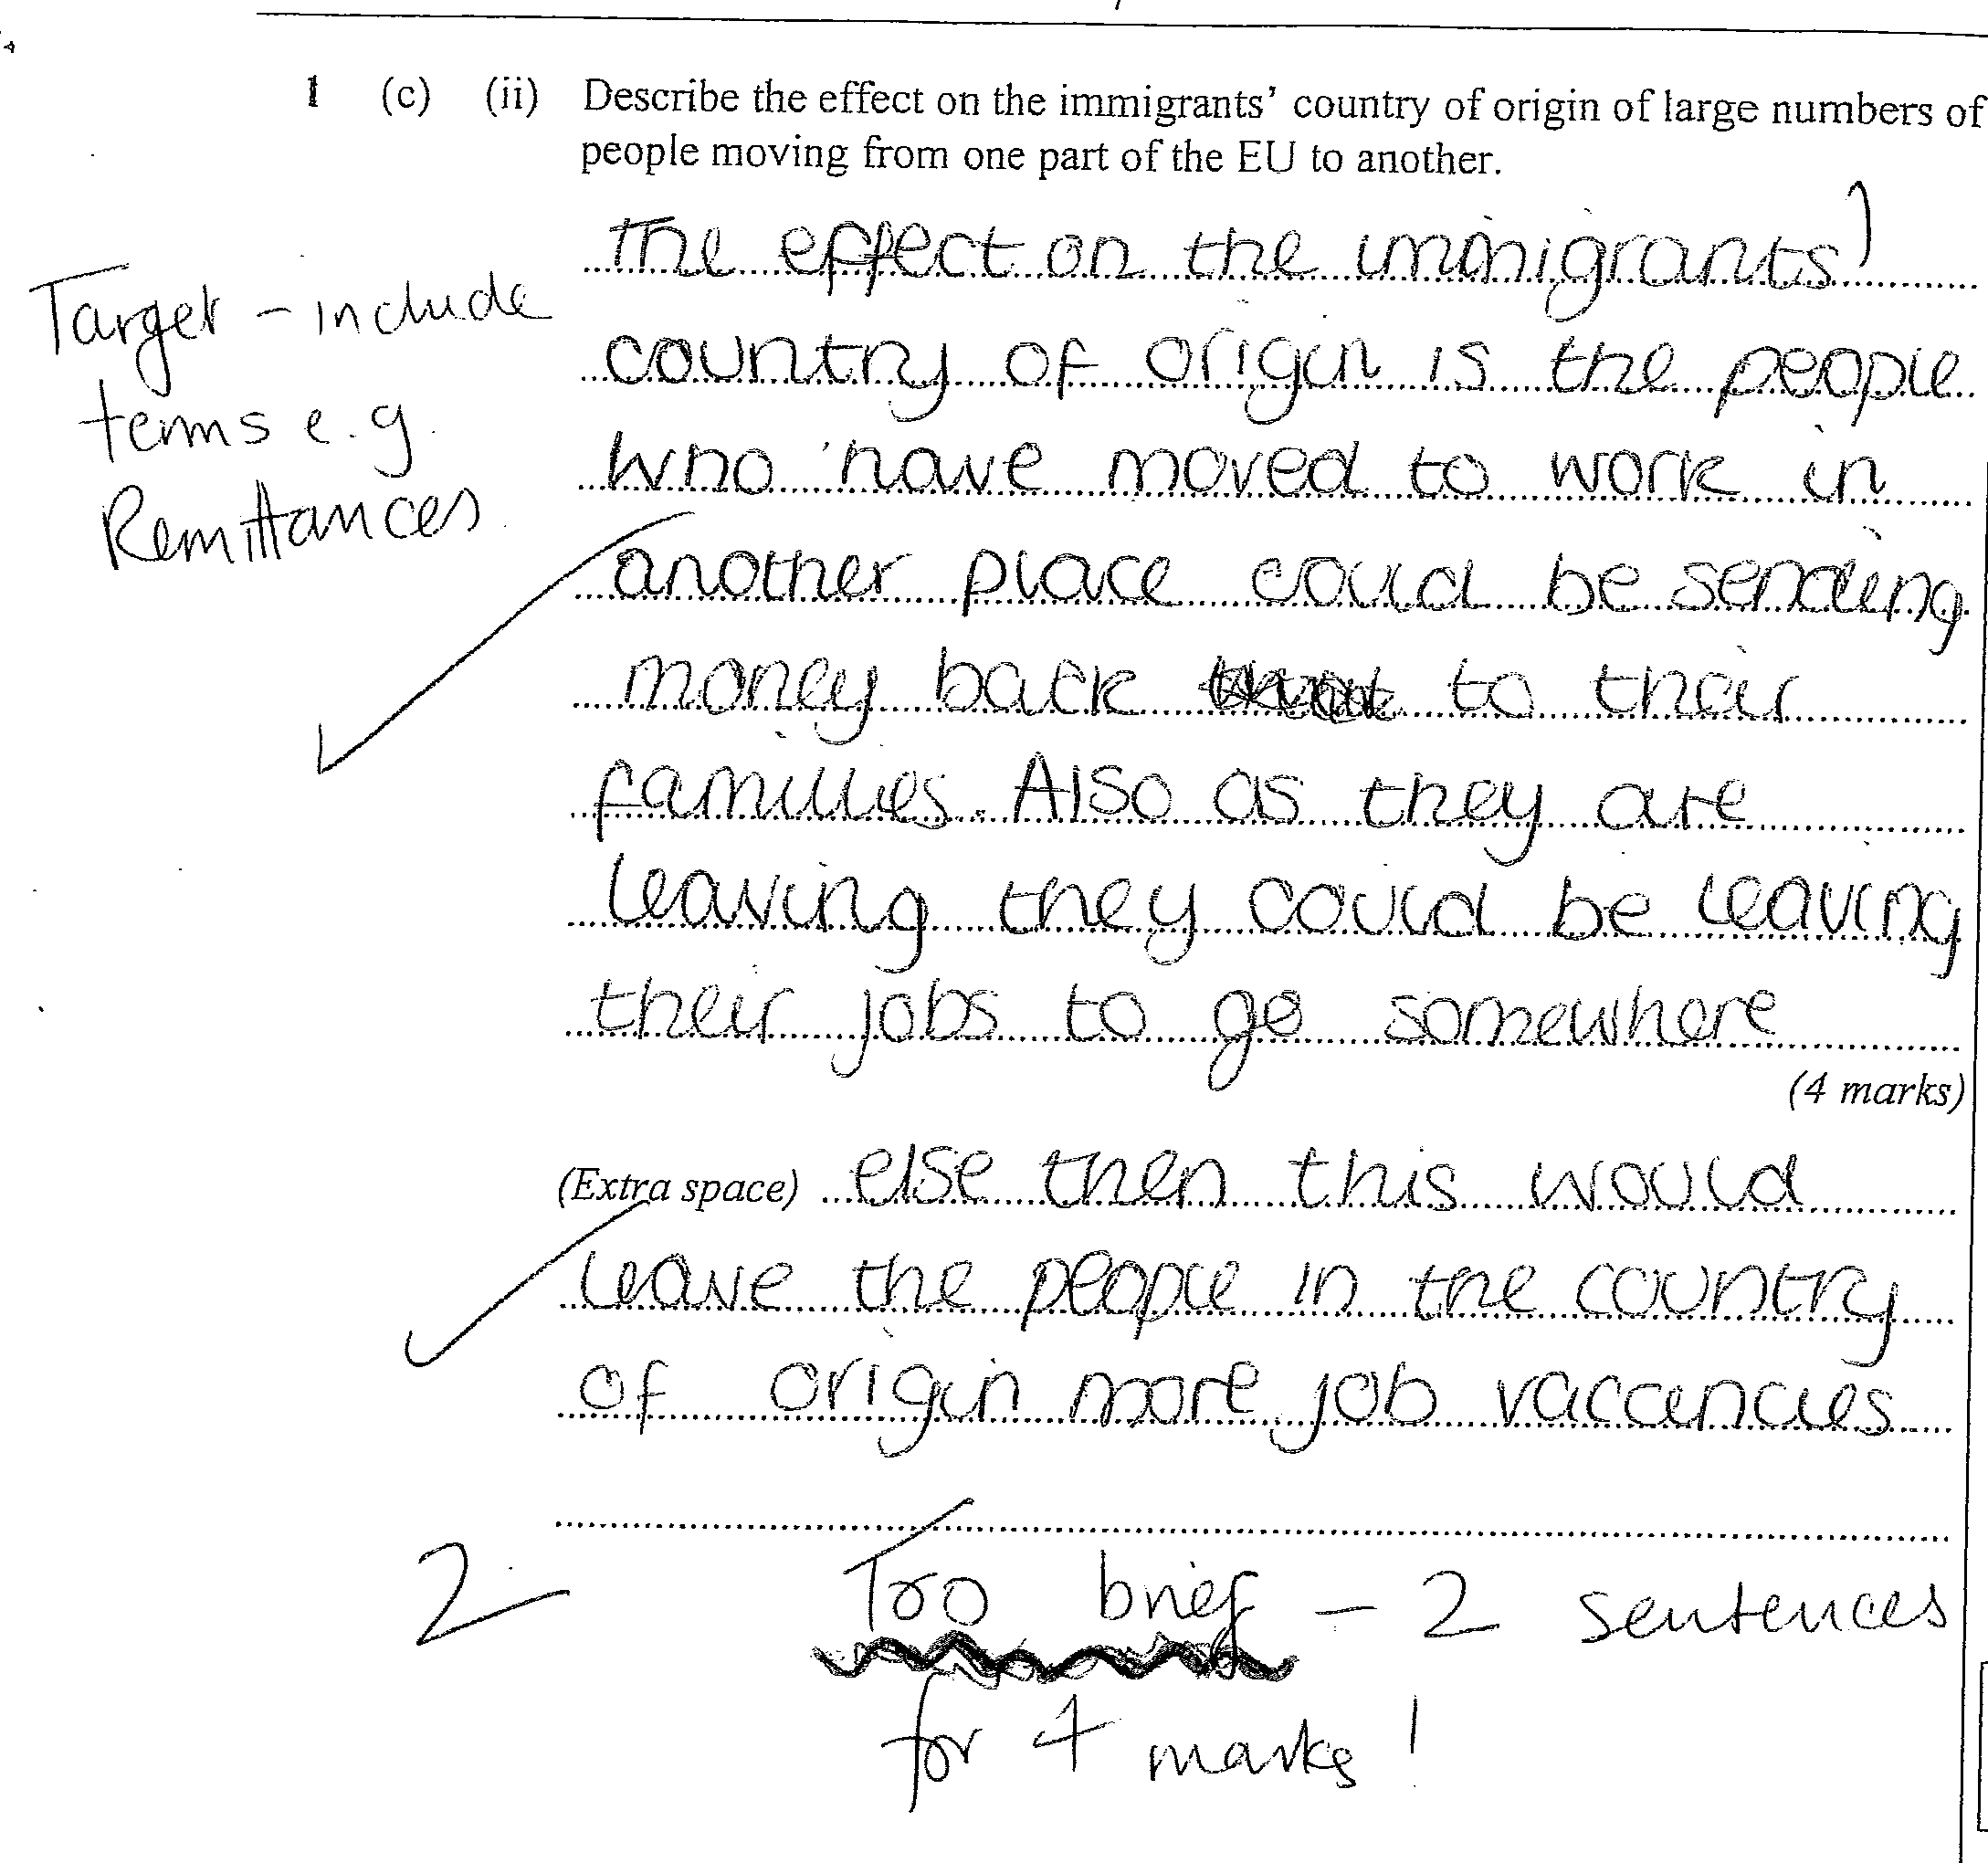 1 (c) (ii) Describe the effect on the immigrants' country of origin of large numbers of
people moving from one part of the EU to another.
The effect on the immigrants'
country of origin is the people
who have moved to work in
another place could be sending
money back to their
families. Also as they are
leaving they could be leaving
their jobs to go somewhere
(4 marks)
(Extra space) else then this would
leave the people in the country
of origin more job vaccancies
Target - include
terms e.g.
Remittances
2
Too brief - 2 sentences
for 4 marks!